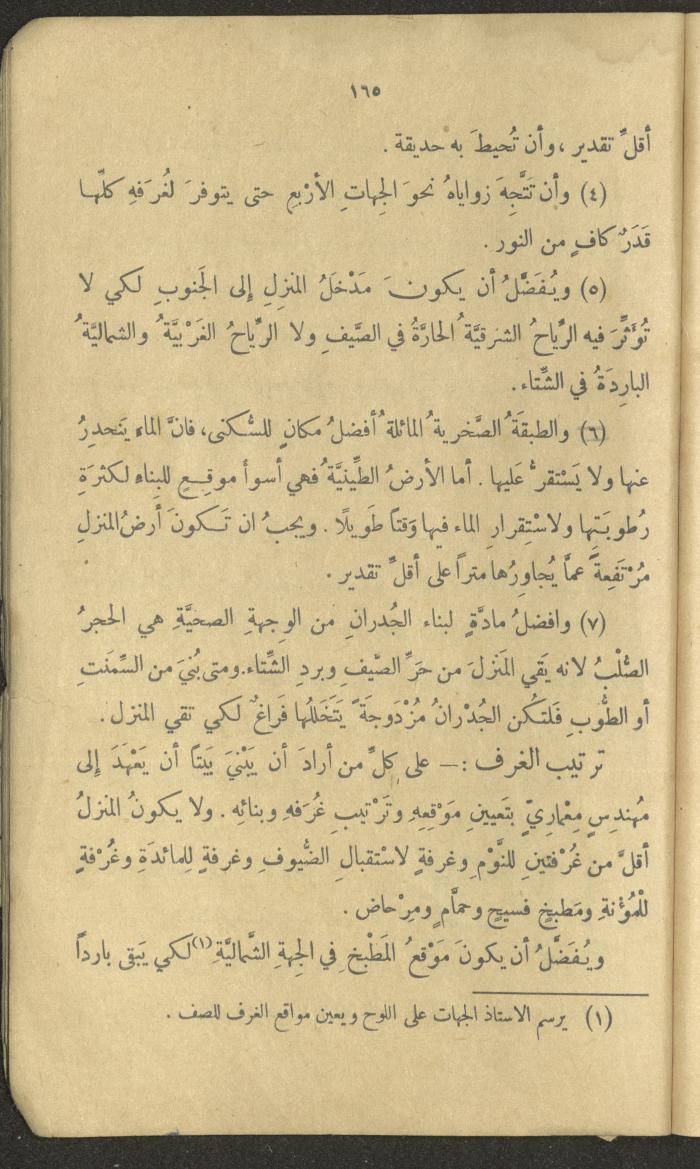 ١٦٥
أقلِّ تقدير ، وأن تُحيطَ به حديقة .
(٤) وأن تَتَّجِهَ زواياهُ نحوَ الجِهاتِ الأَرْبعِ حتى يتوفرَ لغُرَفهِ كلِّها
قَدَرٌ كافٍ من النور .
(٥) ويُفَضَّلُ أن يكونَ مَدْخَلُ المنزلِ إلى الجَنوبِ لكي لا
تُؤَثِّرَ فيه الرِّياحُ الشرقيَّةُ الحارَّةُ في الصَّيفِ ولا الرِّياحُ الغَرْبيَّةُ والشماليَّةُ
البارِدَةُ في الشِّتاء .
(٦) والطبقَةُ الصَّخريةُ المائلةُ أفضلُ مكانٍ للسُّكنى، فانَّ الماءَ يَنحدِرُ
عنها ولا يَسْتقرُّ عَليها . أما الأرضُ الطِّينيَّةُ فهي أسوأُ موقِعٍ للبناءِ لكثرَةِ
رُطوبَتِها ولاسْتِقرارِ الماء فيها وَقتاً طَويلًا . ويجبُ ان تَكونَ أرضُ المنزلِ
مُرْتَفِعةً عمَّا يُجاوِرُها متراً على أقلِّ تقدير .
(٧) وافضلُ مادَّةٍ لبناء الجُدرانِ من الوِجهةِ الصحيَّةِ هي الحجرُ
الصُّلْبُ لانه يَقي المَنزلَ من حَرِّ الصَّيفِ وبردِ الشِّتاء. ومتى بُنيَ من السِّمَنتِ
أو الطُّوبِ فَلتكُن الجُدْرانُ مُزْدَوجَةً يَتَخَللُها فَراغٌ لكي تقي المنزل .
ترتيب الغرف :— على كلِّ من أرادَ أن يَبْنيَ بَيتاً أن يَعْهَدَ إلى
مُهندِسٍ مِعْماريٍّ بتَعيينِ مَوْقِعِهِ وتَرْتيبِ غُرَفهِ وبنائِه . ولا يكونُ المنزلُ
أقلَّ من غُرْفتينِ للنَّوْمِ وغرفةٍ لاسْتقبالِ الضُّيوفِ وغرفةٍ للمائدَةِ وغُرْفةٍ
للْمُؤْنةِ ومَطبخٍ فسيحٍ وحمَّامٍ ومِرْحاض .
ويُفَضَّلُ أن يكونَ مَوْقعُ المَطْبخِ في الجِهةِ الشَّماليَّةِ (١) لكي يَبقى بارداً
(١) يرسم الاستاذ الجهات على اللوح ويعين مواقع الغرف للصف .